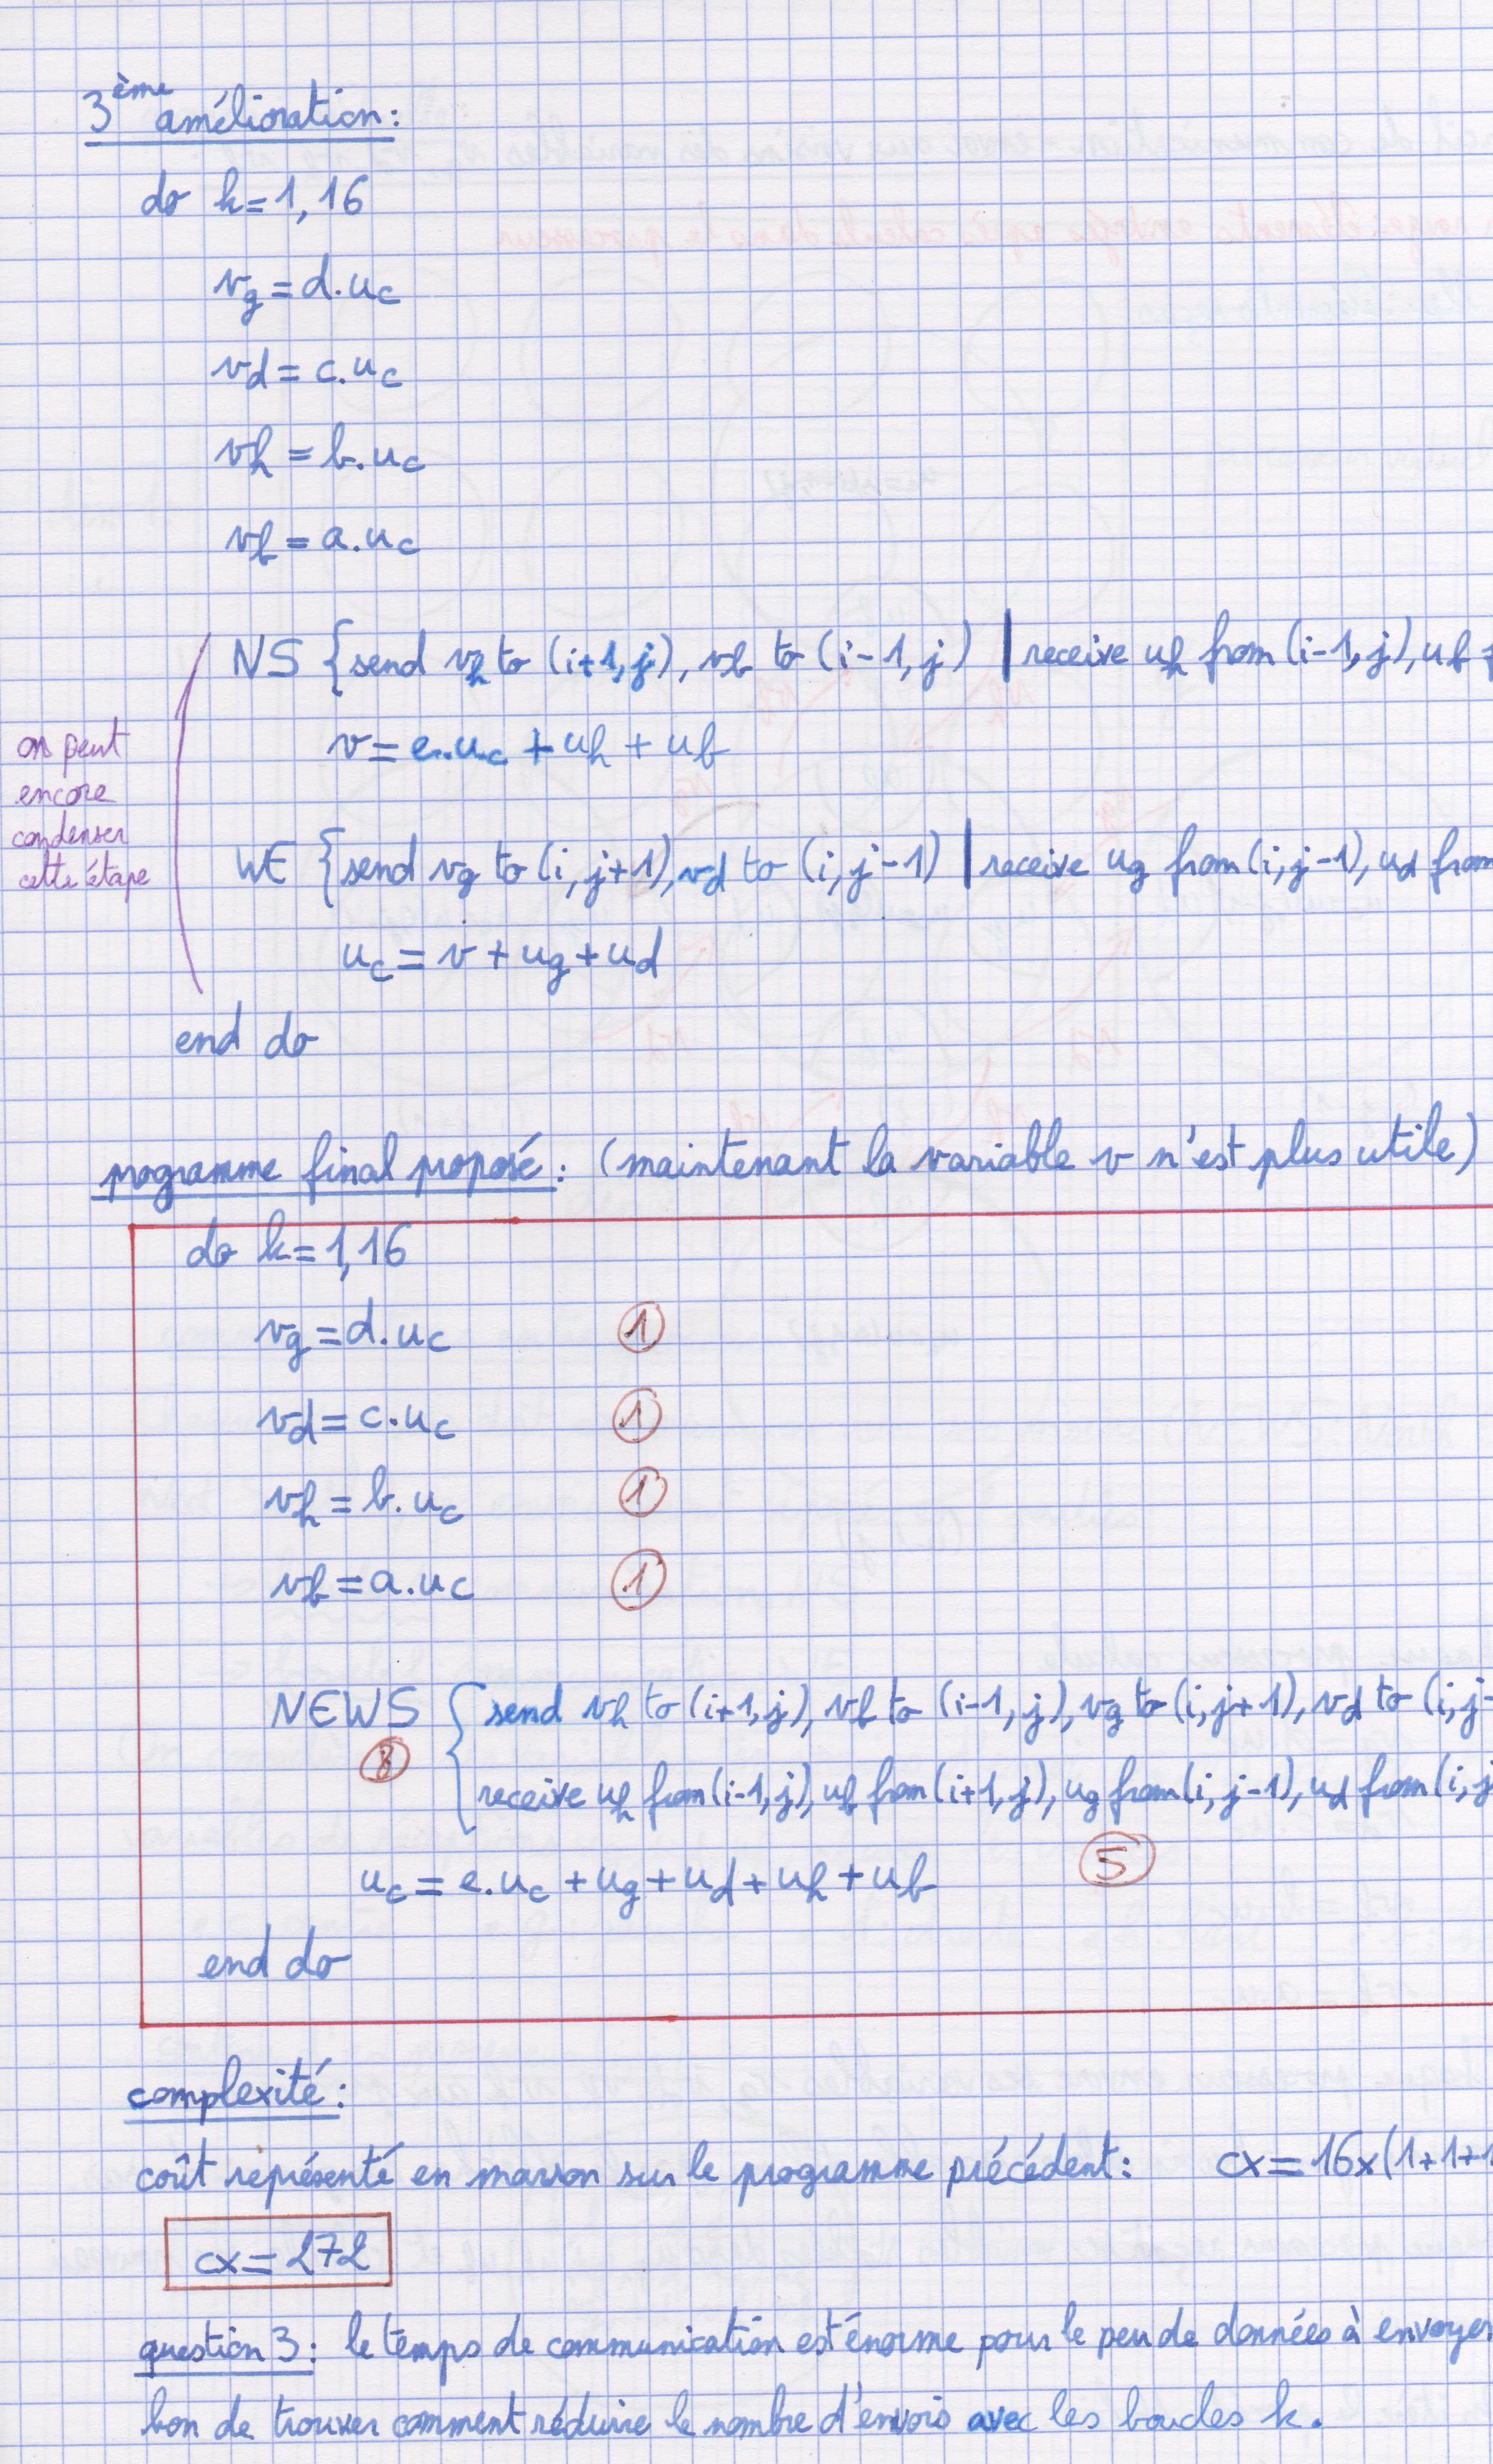 3ème amélioration:
do k=1,16
vg = d.uc
vd = c.uc
vh = b.uc
vb = a.uc
NS {send vh to (i+1,j), vb to (i-1,j) | receive uh from (i-1,j), ub
v = e.uc + uh + ub
on peut
encore
condenser
cette étape
WE {send vg to (i,j+1), vd to (i,j-1) | receive ug from (i,j-1), ud from
uc = v + ug + ud
end do
programme final proposé: (maintenant la variable v n'est plus utile)
do k=1,16
vg = d.uc 1
vd = c.uc 1
vh = b.uc 1
vb = a.uc 1
NEWS { send vh to (i+1,j), vb to (i-1,j), vg to (i,j+1), vd to (i,j-
8 receive uh from (i-1,j), ub from (i+1,j), ug from (i,j-1), ud from (i,j
uc = e.uc + ug + ud + uh + ub 5
end do
complexité:
coût représenté en marron sur le programme précédent: cx = 16x(1+1+1
cx = 272
question 3: le temps de communication est énorme pour le peu de données à envoyer
bon de trouver comment réduire le nombre d'envois avec les boucles k.